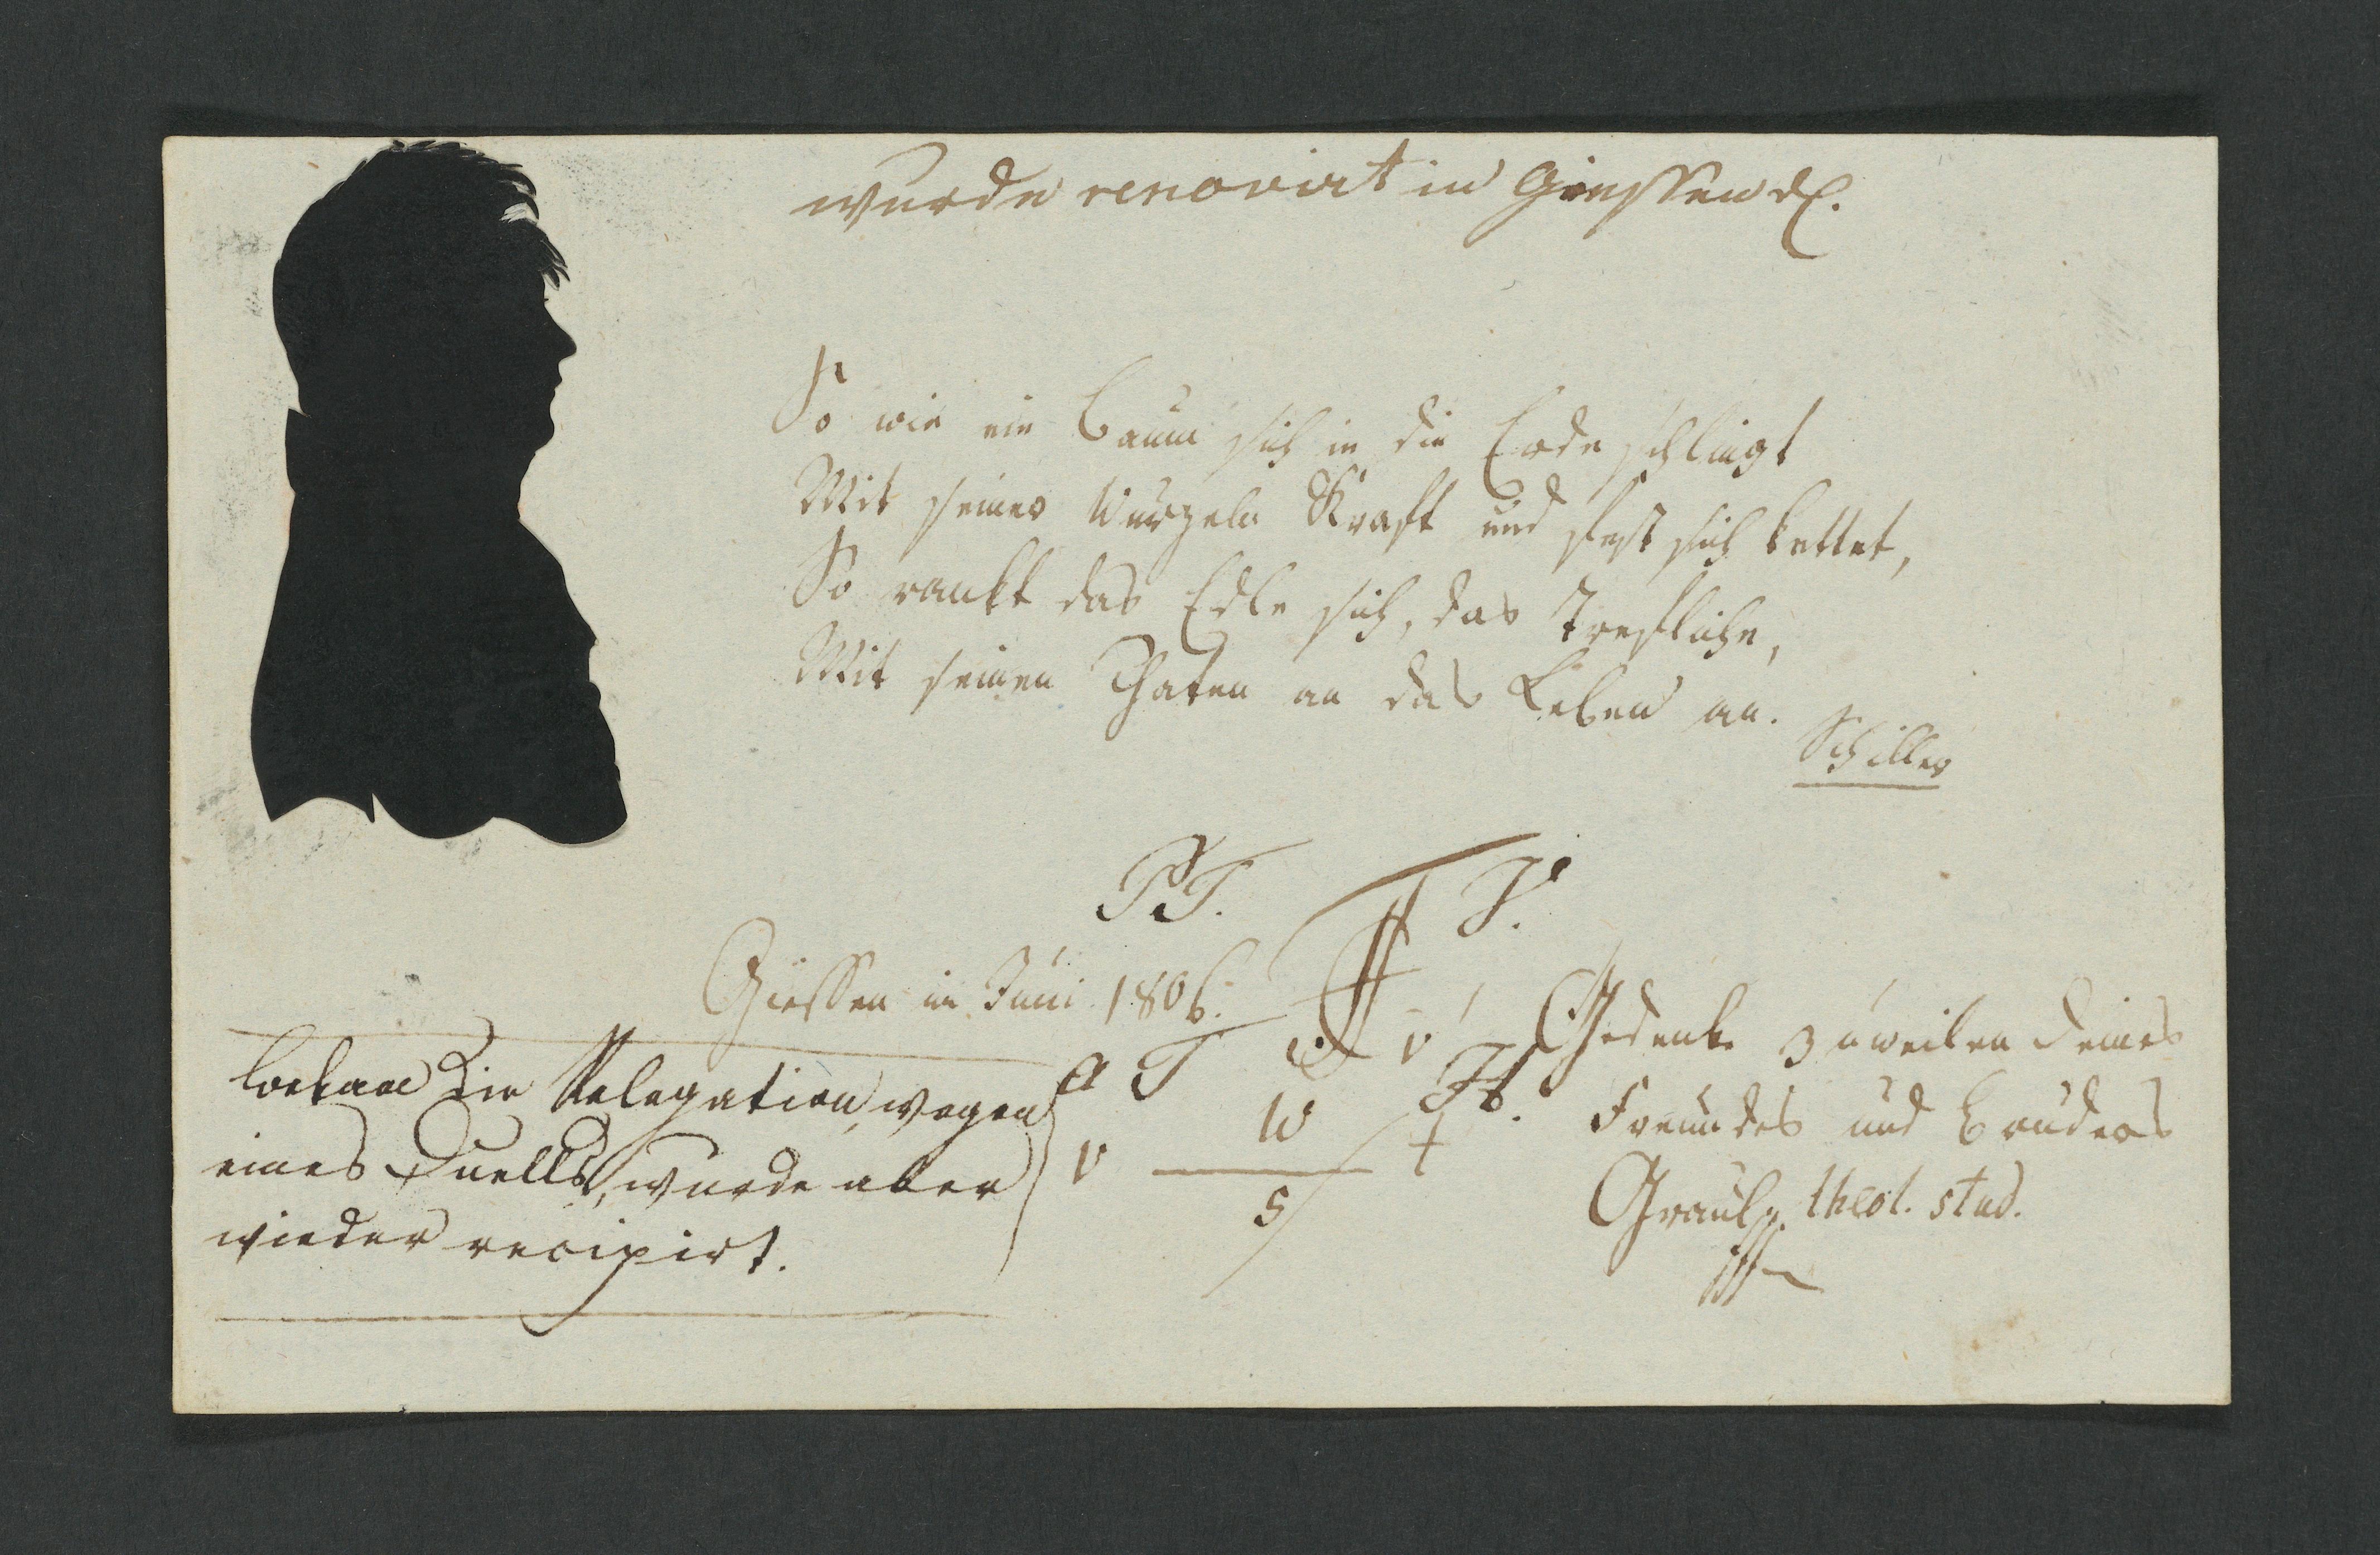 wurde renovirt in Giessen d.
So wie ein Baum sich in die Erde schlingt
Mit seiner Wurzeln Kraft und fest sich kettet,
So rankt das Edle sich, das Trefliche,
Mit seinen Thaten an das Leben an.
Schiller
P.T.
V.
Giessen im Juni 1806.
a T v H.
v W †
5
Gedenke zuweilen deines
Freundes und Bruders
Graul, theol. stud.
bekam die Relegation, wegen
eines Duells, wurde aber
wieder recipirt.